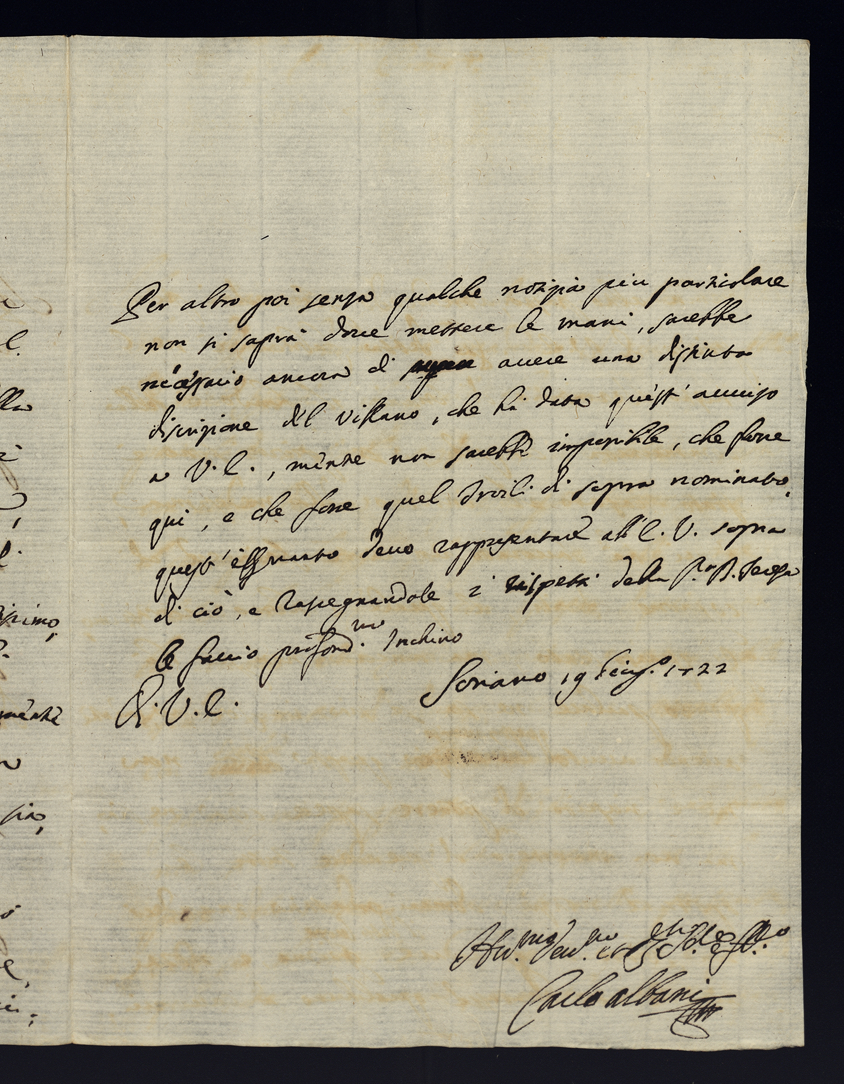 Per altro poi senza qualche notizia più particolare
non si saprà dove mettere le mani, sarebbe
necessario ancora di avere una distinta
discrizione del Villano, che hà dato quest'avviso
a V.E., mentre non sarebbe imposibile, che fosse
qui, e che fosse quel di sopra nominato,
quest'è quanto devo rappresentare all'E.V. sopra
di ciò, e rasegnandole i rispetti della
le faccio profond.mo Inchino
Soriano 19 1722
V.E.
Carlo Albani